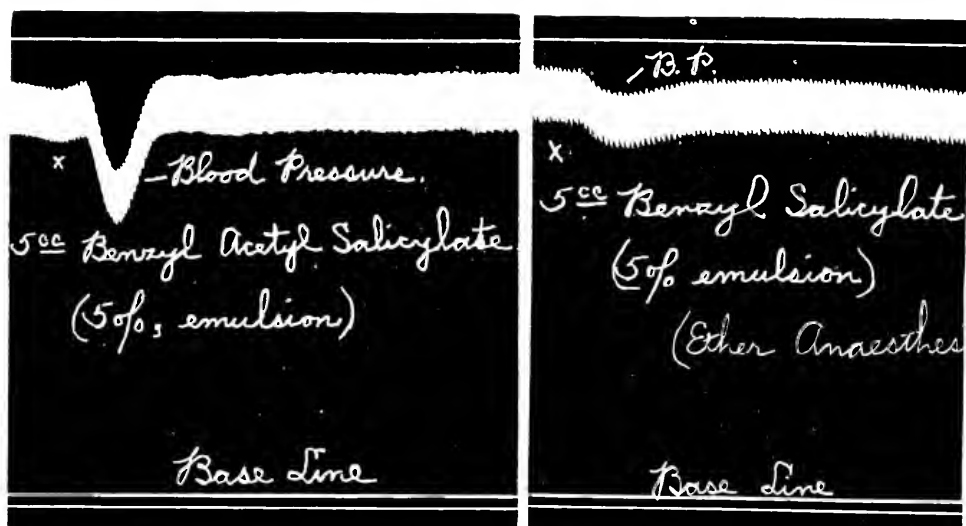 x
Blood Pressure.
5cc Benzyl Acetyl Salicylate
(5%, emulsion)
Base Line
B.P.
x
5cc Benzyl Salicylate
(5% emulsion)
(Ether Anaesthes
Base Line